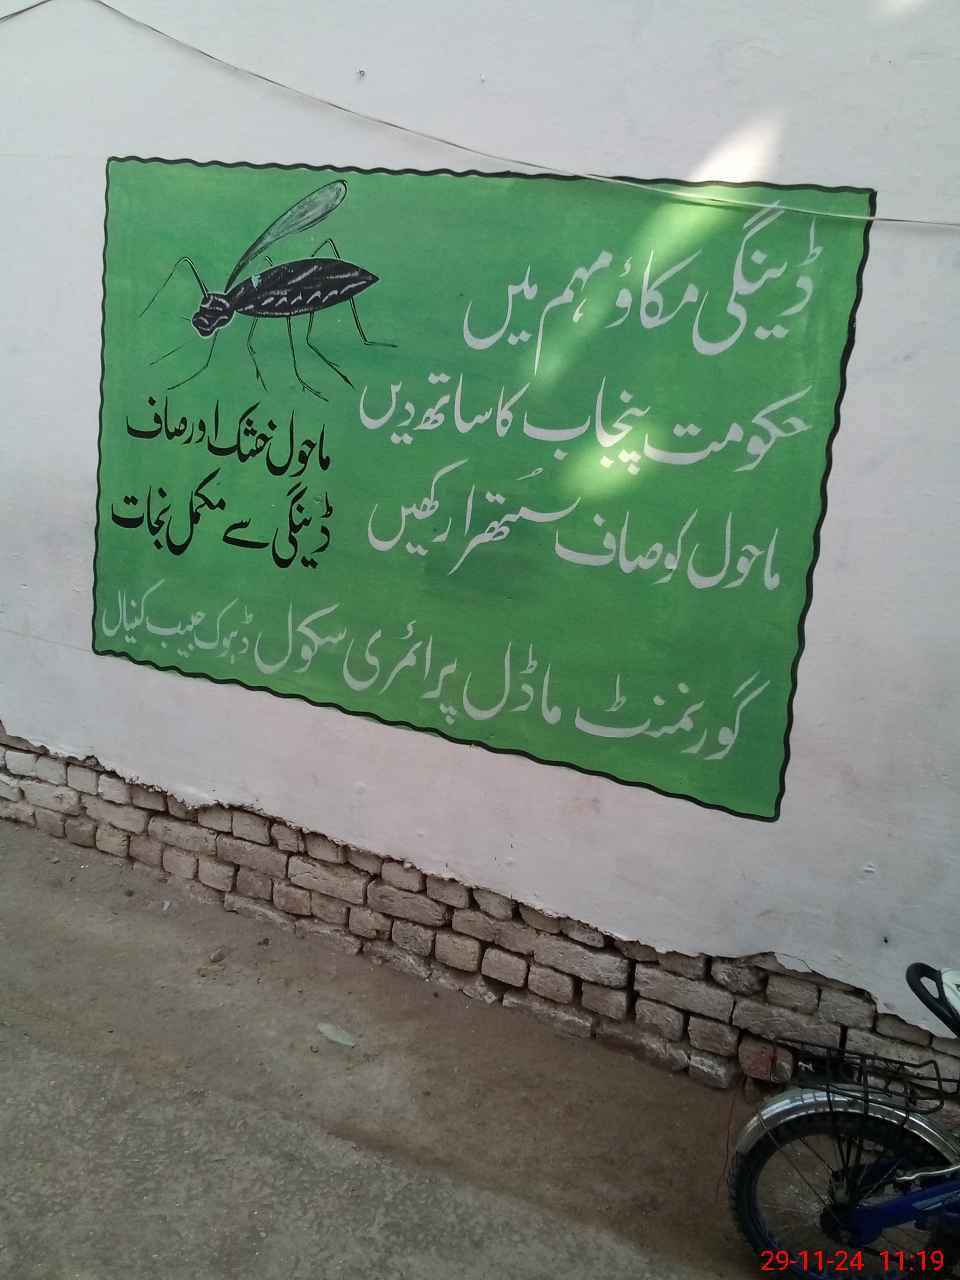 ڈینگی مکاؤ مہم میں
حکومت پنجاب کا ساتھ دیں
ماحول کو صاف ستھرا رکھیں
ماحول خشک اور صاف
ڈینگی سے مکمل نجات
گورنمنٹ ماڈل پرائمری سکول ڈہوک حبیب کنیال
29-11-24 11:19